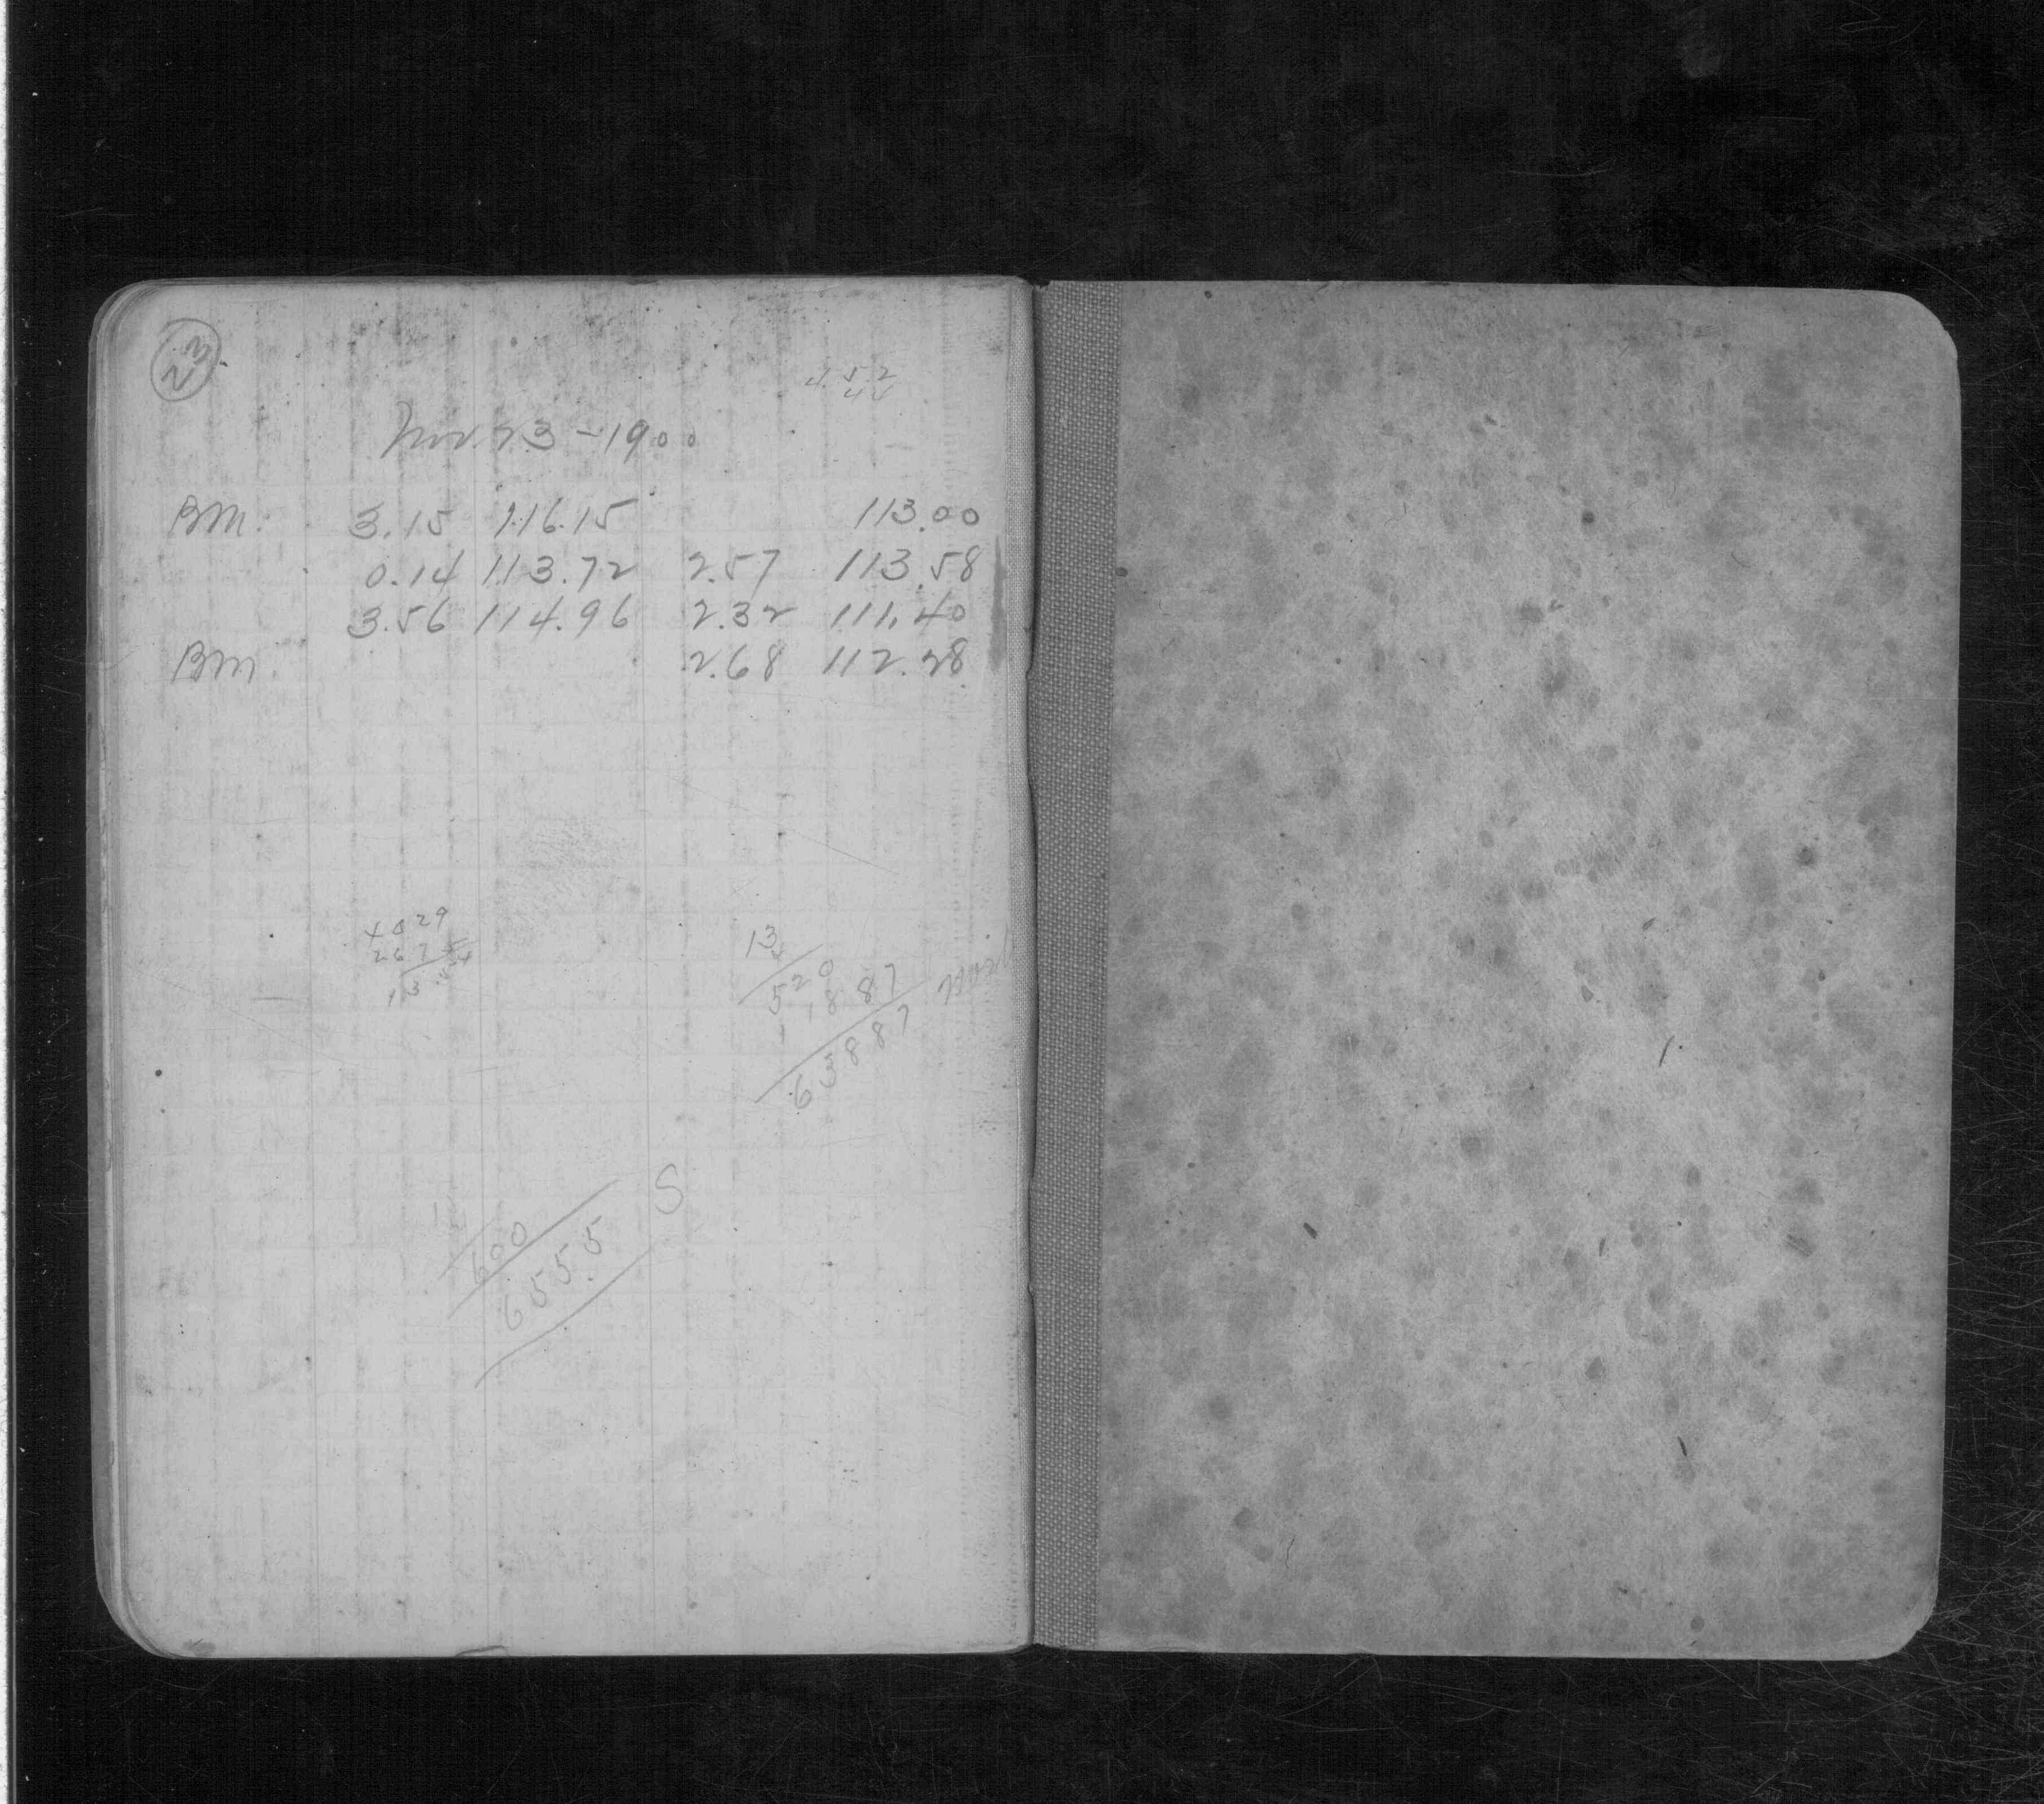 23
4.52
Nov. 23-1900
BM. 3.15 116.15 113.00
0.14 113.72 2.57 113.58
3.56 114.96 2.32 111.40
BM. 2.68 112.28
4029
267
13
13
4
520
1187
63887
600
6555
S